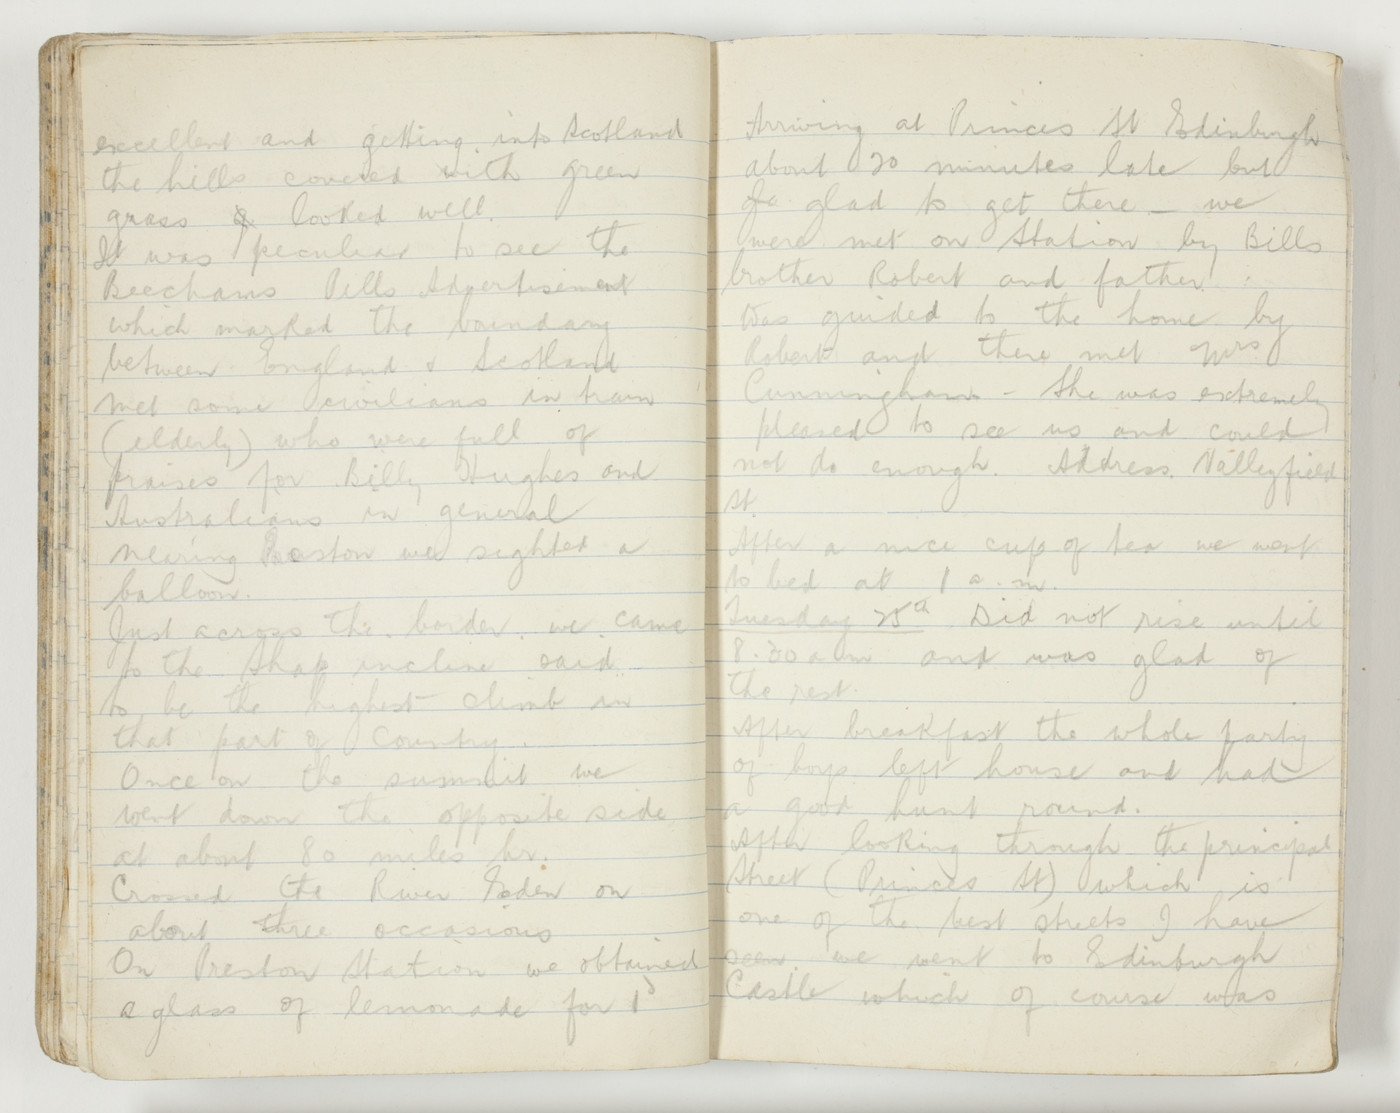 excellent and getting into Scotland
the hills covered with green
grass & looked well.
It was peculiar to see the
Beechams Pills Advertisement
which marked the boundary
between England & Scotland
Met some civilians in train
(elderly) who were full of
praises for Billy Hughes and
Australians in general
Nearing Preston we sighted a
balloon.
Just across the border we came
to the Shap incline said
to be the highest climb in
that part of Country.
Once on the summit we
went down the opposite side
at about 80 miles hr.
Crossed the River Eden on
about three occasions
On Preston Station we obtained
a glass of lemonade for 1d
Arriving at Princes St Edinburgh
about 20 minutes late but
glad to get there – we
were met on Station by Bills
brother Robert and father.
Was guided to the home by
Robert and there met Mrs
Cunningham – She was extremely
pleased to see us and could
not do enough. Address. Valleyfield
St.
After a nice cup of tea we went
to bed at 1 a.m.
Tuesday 25th Did not rise until
8.30 am and was glad of
the rest.
After breakfast the whole party
of boys left house and had
a good hunt round.
After looking through the principal
Street (Princes St) which is
one of the best streets I have
seen we went to Edinburgh
Castle which of course was